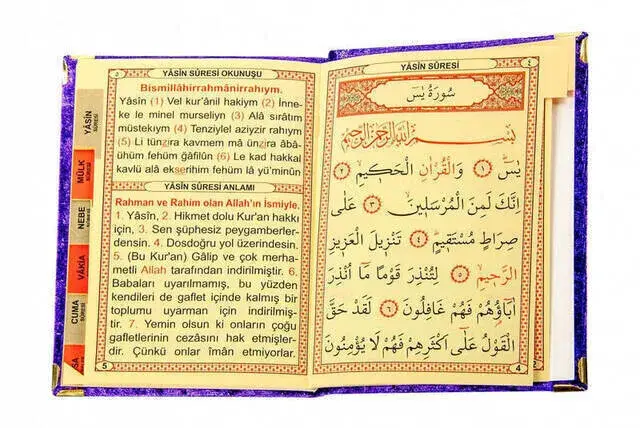 YÂSİN SÛRESİ
٤
سُورَةُ يٰسٓ
بِسْمِ اللّٰهِ الرَّحْمٰنِ الرَّحِيمِ
يٰسٓ ﴿١﴾ وَالْقُرْاٰنِ الْحَكِيمِ ﴿٢﴾
اِنَّكَ لَمِنَ الْمُرْسَلِينَ ﴿٣﴾ عَلٰى
صِرَاطٍ مُسْتَقِيمٍ ﴿٤﴾ تَنْزِيلَ الْعَزِيزِ
الرَّحِيمِ ﴿٥﴾ لِتُنْذِرَ قَوْمًا مَٓا اُنْذِرَ
اٰبَٓاؤُهُمْ فَهُمْ غَافِلُونَ ﴿٦﴾ لَقَدْ حَقَّ
الْقَوْلُ عَلٰٓى اَكْثَرِهِمْ فَهُمْ لَا يُؤْمِنُونَ
4
2
YÂSİN SÛRESİ OKUNUŞU
٥
Bismillâhirrahmânirrahıym.
Yâsîn (1) Vel kur'ânil hakiym (2) İnne-
ke le minel murseliyn (3) Alâ sıratım
müstekıym (4) Tenziylel aziyzir rahıym
(5) Li tünzira kavmem mâ ünzira âbâ-
ühüm fehüm ğâfilûn (6) Le kad hakkal
kavlü alâ ekserihim fehüm lâ yü'minûn
YÂSİN SÛRESİ ANLAMI
Rahman ve Rahim olan Allah'ın İsmiyle.
1. Yâsîn, 2. Hikmet dolu Kur'an hakkı
için, 3. Sen şüphesiz peygamberler-
densin. 4. Dosdoğru yol üzerindesin.
5. (Bu Kur'an) Gâlip ve çok merha-
metli Allah tarafından indirilmiştir. 6.
Babaları uyarılmamış, bu yüzden
kendileri de gaflet içinde kalmış bir
toplumu uyarman için indirilmiş-
tir. 7. Yemin olsun ki onların çoğu
gafletlerinin cezasını hak etmişler-
dir. Çünkü onlar îman etmiyorlar.
5
YÂSİN
SÛRESİ
MÜLK
SÛRESİ
NEBE
SÛRESİ
VÂKIA
SÛRESİ
CUMA
SÛRESİ